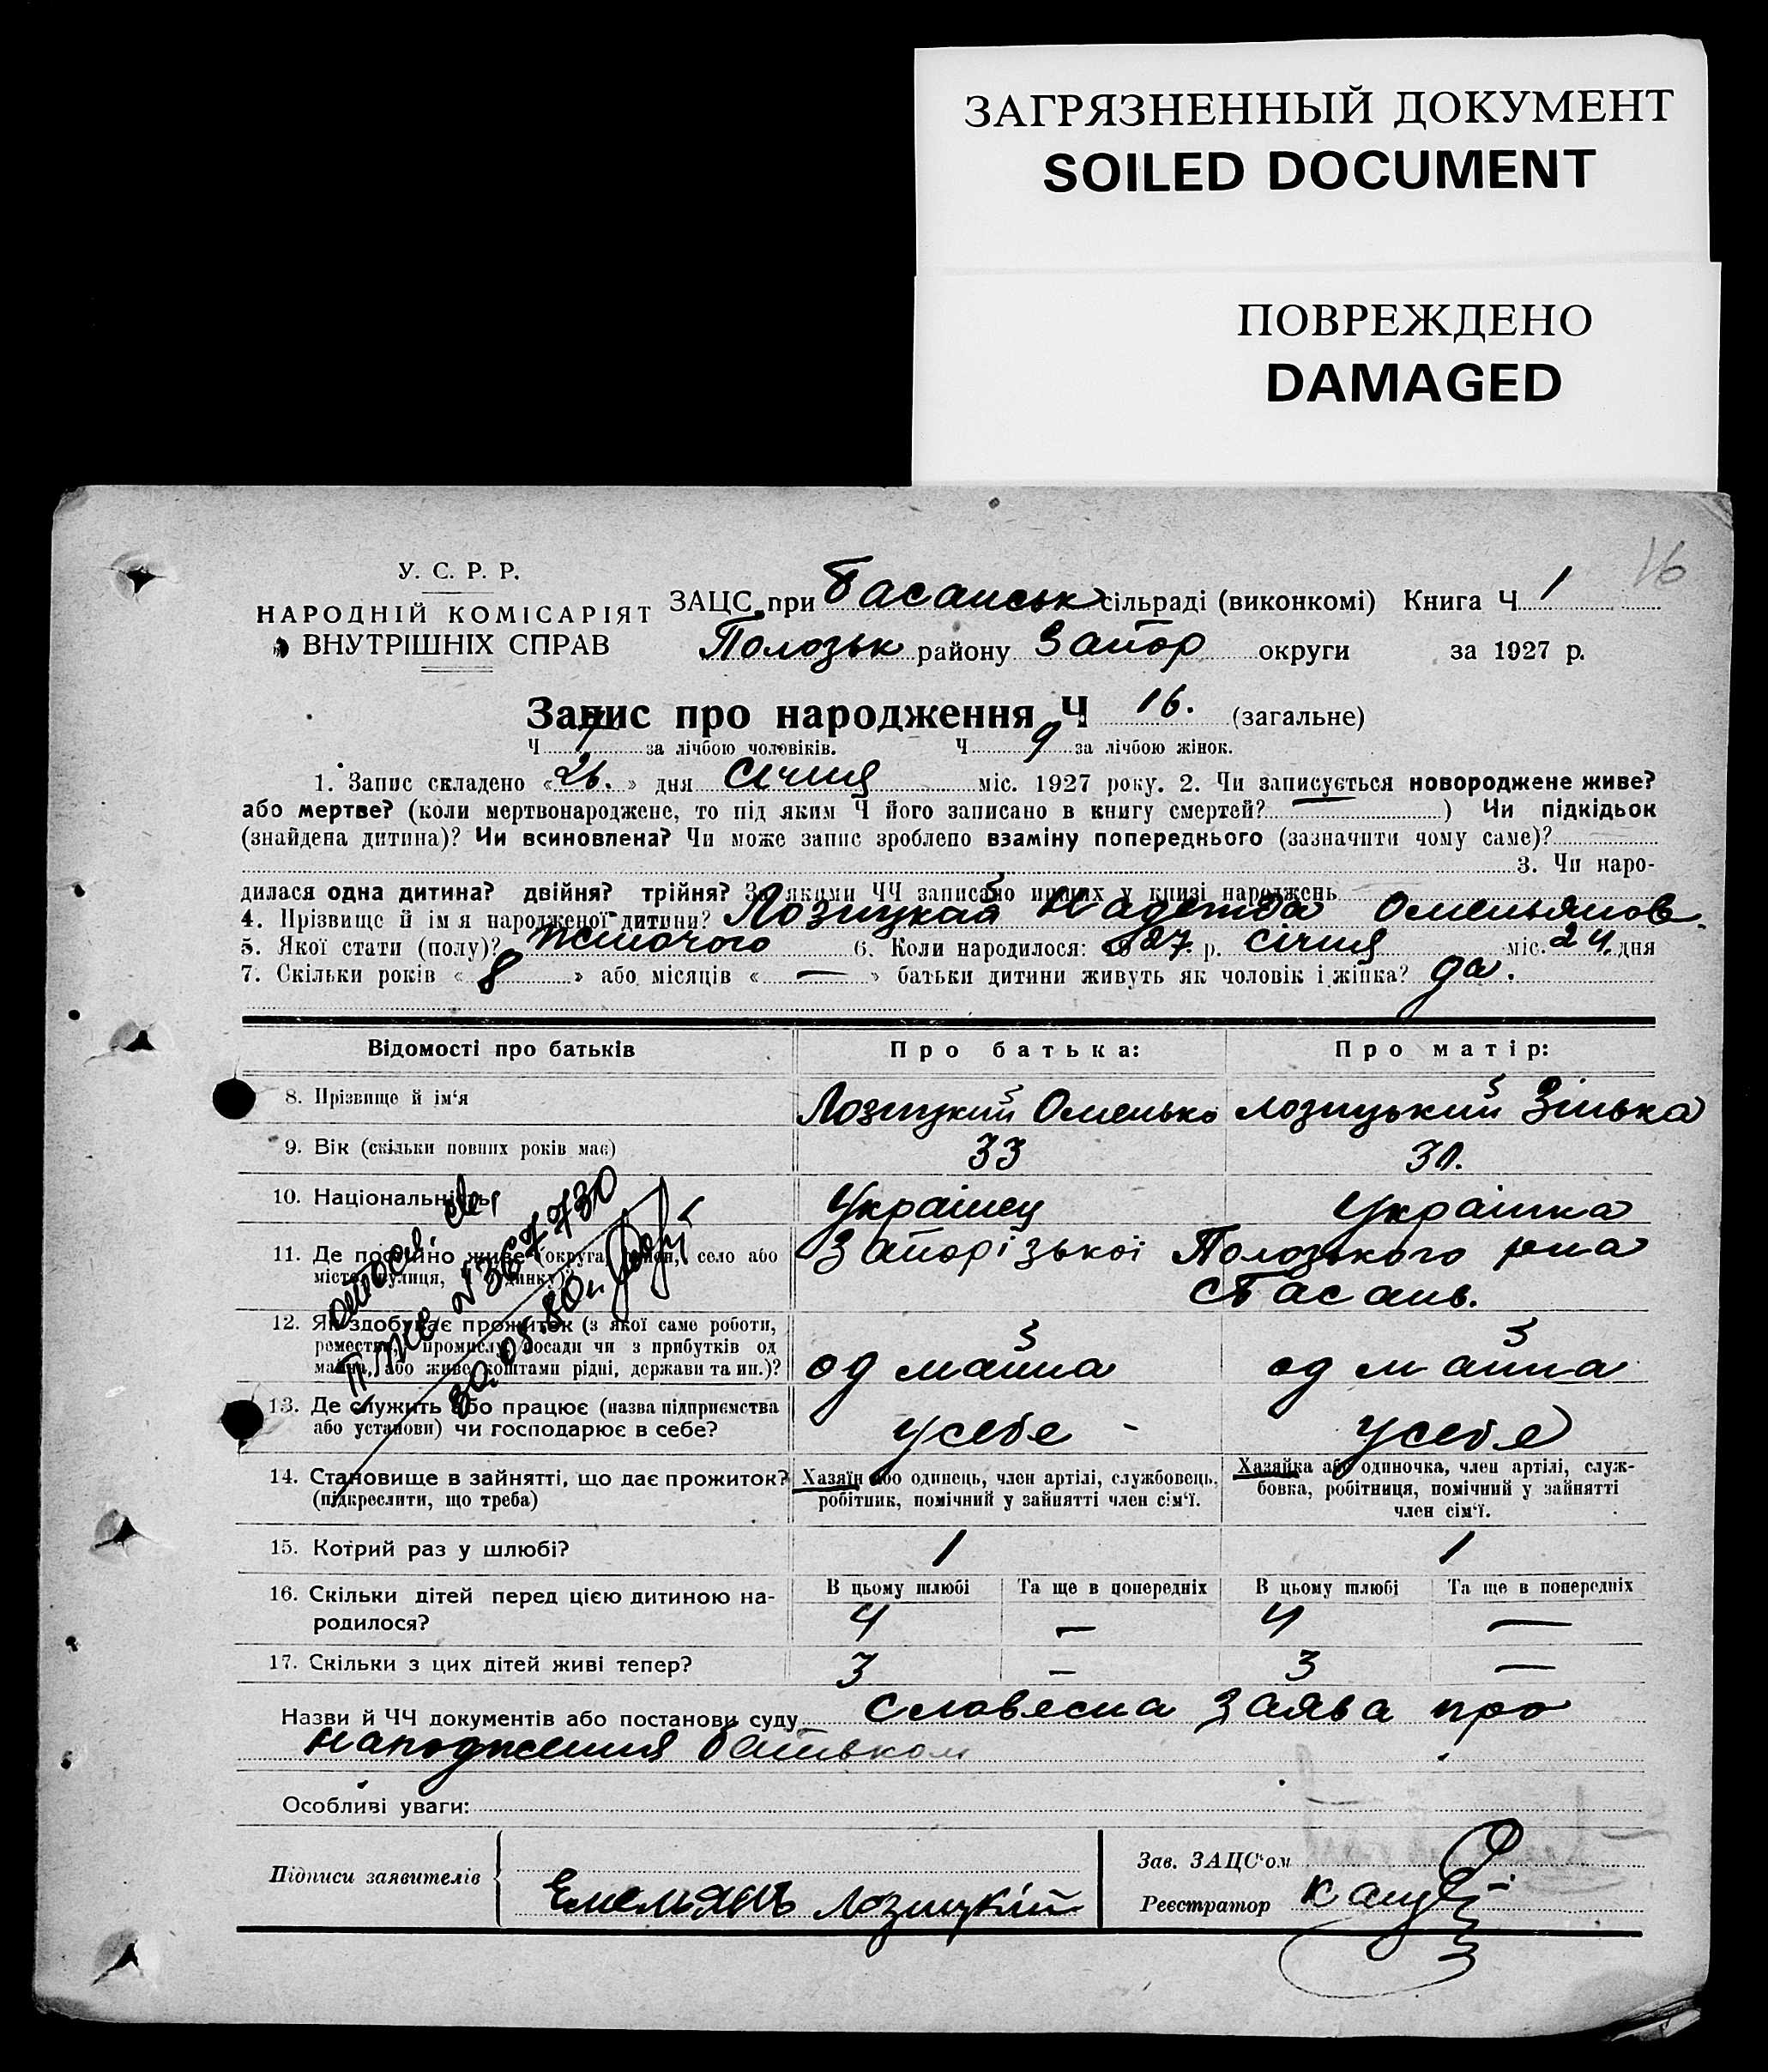 ЗАГРЯЗНЕННЫЙ ДОКУМЕНТ
SOILED DOCUMENT
ПОВРЕЖДЕНО
DAMAGED
16
У. С. Р. Р.
НАРОДНІЙ КОМІСАРІЯТ
ВНУТРІШНІХ СПРАВ
ЗАЦС при Басанськ сільраді (виконкомі) Книга Ч 1
Полозьк району Запор округи за 1927 р.
Запис про народження Ч 16. (загальне)
Ч 7 за лічбою чоловіків. Ч 9 за лічбою жінок.
1. Запис складено «26.» дня Січня міс. 1927 року. 2. Чи записується новороджене живе?
або мертве? (коли мертвонароджене, то під яким Ч його записано в книгу смертей? —) Чи підкідьок
(знайдена дитина)? Чи всиновлена? Чи може запис зроблено взаміну попереднього (зазначити чому саме)?
3. Чи наро-
дилася одна дитина? двійня? трійня? За якими ЧЧ записано инших у книзі народжень
4. Прізвище й ім'я народженої дитини? Лозицкай Надежда Омельянов.
5. Якої стати (полу)? жіночого 6. Коли народилося: 1927. р. січня міс. 24. дня
7. Скільки років «8» або місяців «—» батьки дитини живуть як чоловік і жінка? да.
Відомості про батьків Про батька: Про матір:
8. Прізвище й ім'я Лозицкий Оменько Лозицький Зінька
9. Вік (скільки повних років має) 33 30.
10. Національність Українец Українка
11. Де постійно живе (округа, район, село або Запорізької Полозького рна
місто, вулиця, Ч будинку)? с Басань.
12. Як здобуває прожиток (з якої саме роботи,
ремества, промислу, посади чи з прибутків од
майна, або живе коштами рідні, держави та ин.)? од майна од майна
13. Де служить або працює (назва підприємства
або установи) чи господарює в себе? усебе - усебе
14. Становище в зайнятті, що дає прожиток? Хазяїн або одинець, член артілі, службовець, Хазяйка або одиночка, член артілі, служ-
(підкреслити, що треба) робітник, помічний у зайнятті член сім'ї. бовка, робітниця, помічний у зайнятті
член сім'ї.
15. Котрий раз у шлюбі? 1 1
16. Скільки дітей перед цією дитиною на- В цьому шлюбі Та ще в попередніх В цьому шлюбі Та ще в попередніх
родилося? 4 — 4 —
17. Скільки з цих дітей живі тепер? 3 — 3 —
Назви й ЧЧ документів або постанови суду Словесна Заява про
народження батьком
Особливі уваги:
Підписи заявителів Зав. ЗАЦС'ом
Емельянъ Лозицкій Реєстратор
N 367730
30.05.80г.